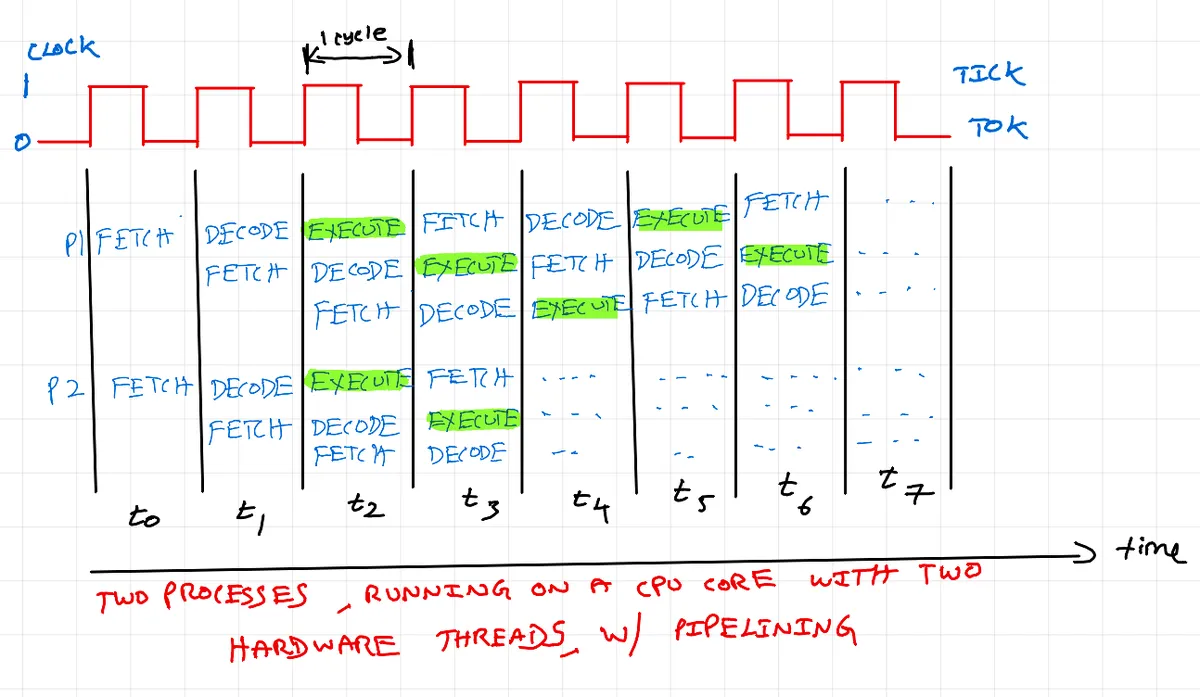 CLOCK
1 cycle
1
TICK
0
TOK
P1 FETCH DECODE EXECUTE FETCH DECODE EXECUTE FETCH ....
FETCH DECODE EXECUTE FETCH DECODE EXECUTE ...
FETCH DECODE EXECUTE FETCH DECODE ....
P2 FETCH DECODE EXECUTE FETCH .... .... .... ....
FETCH DECODE EXECUTE .... ... ... ...
FETCH DECODE .. .. ... ....
t0 t1 t2 t3 t4 t5 t6 t7
time
TWO PROCESSES, RUNNING ON A CPU CORE WITH TWO
HARDWARE THREADS, W/ PIPELINING